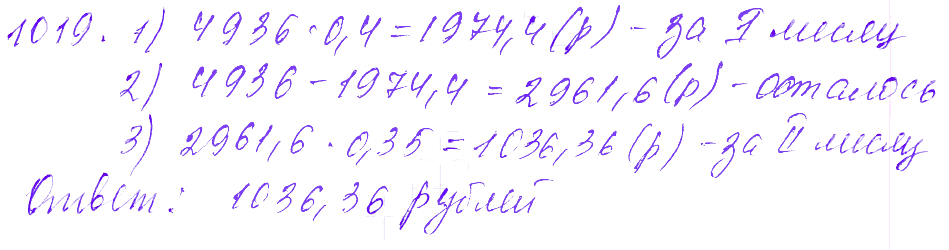 1019. 1) 4936 · 0,4 = 1974,4 (р) - за I месяц
2) 4936 - 1974,4 = 2961,6 (р) - осталось
3) 2961,6 · 0,35 = 1036,36 (р) - за II месяц
Ответ: 1036,36 рублей